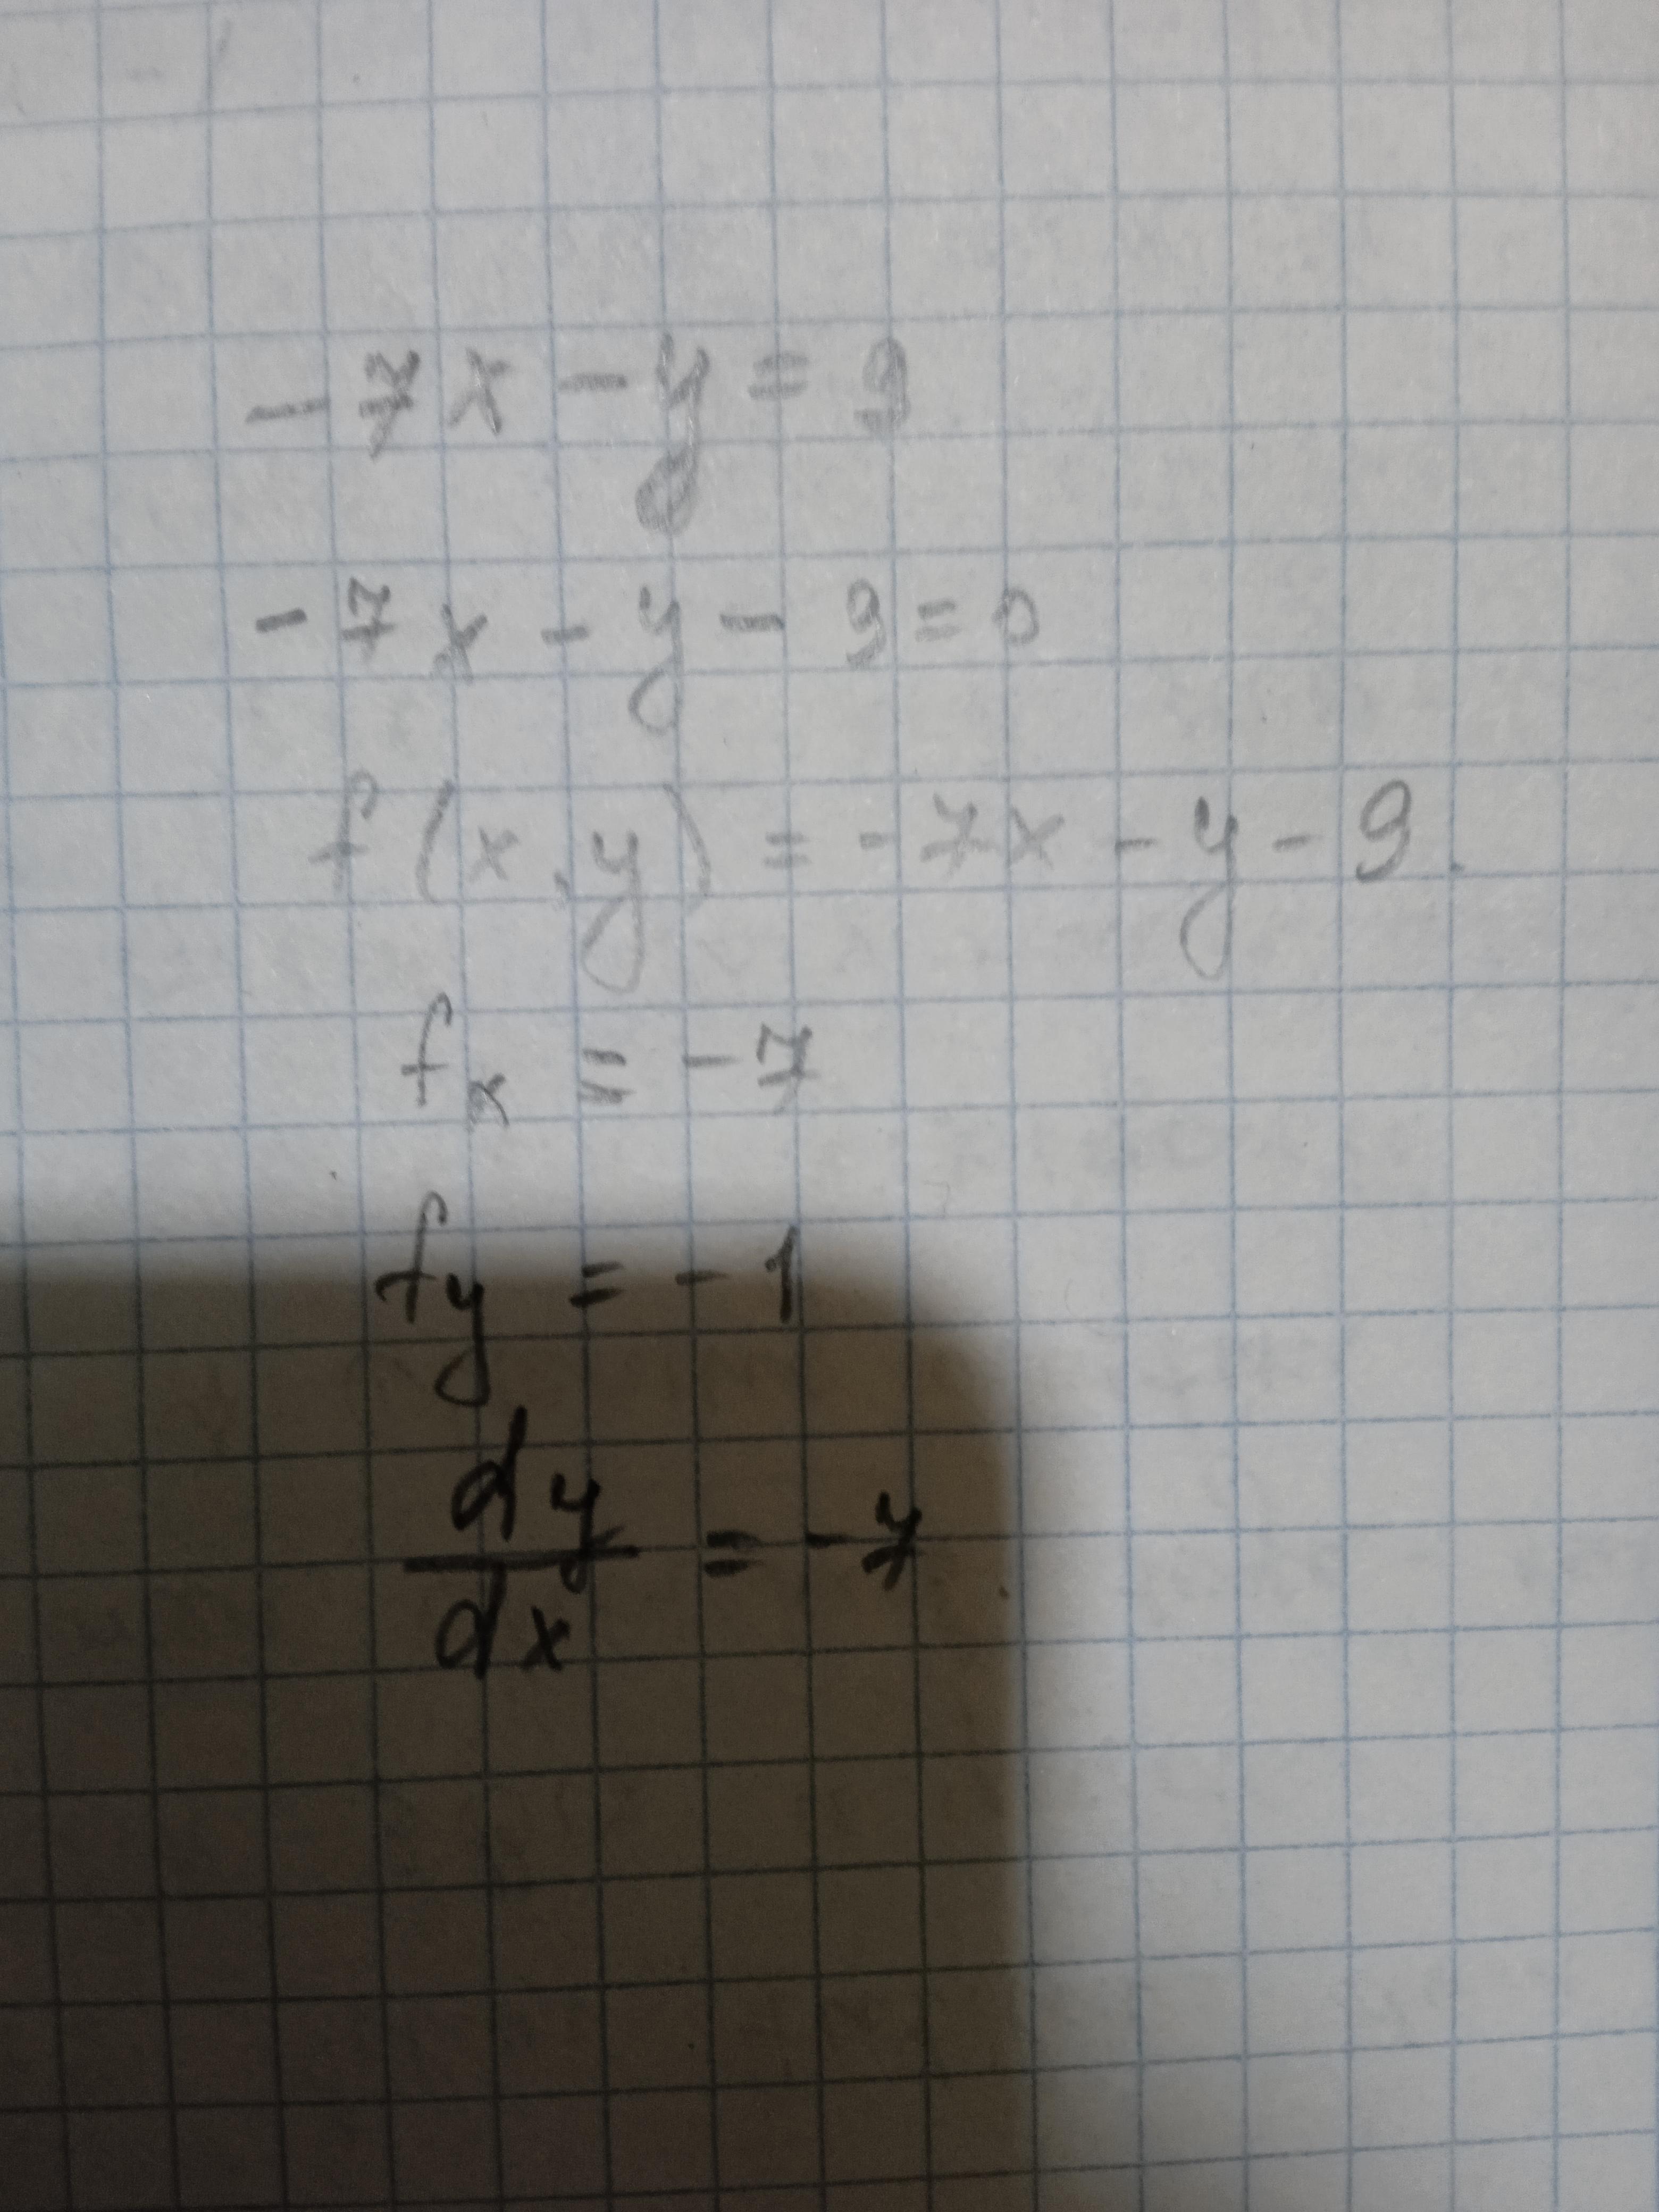 -7x - y = 9
-7x - y - 9 = 0
f(x,y) = -7x - y - 9.
fx = -7
fy = -1
dy/dx = -7